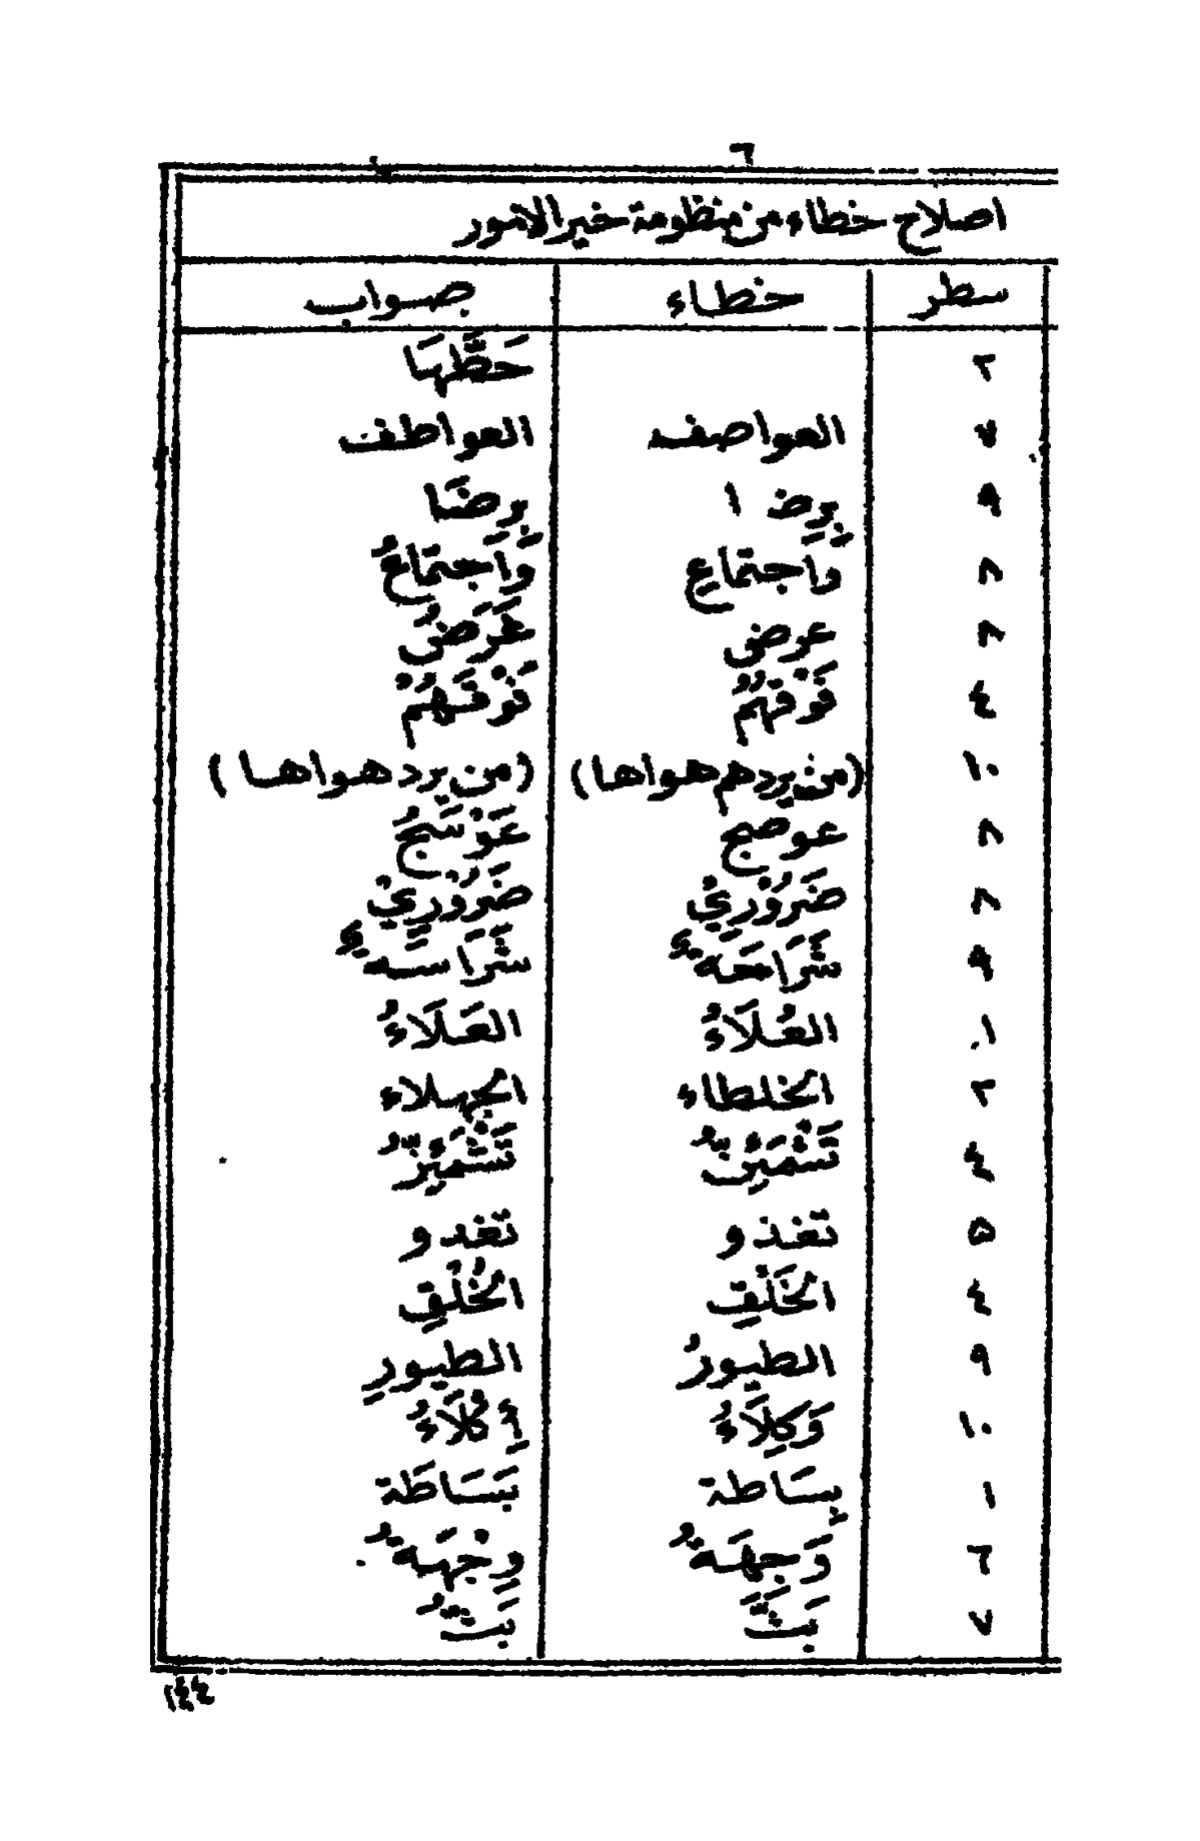 ٦
اصلاح خطاء من منظومة خير الامور
سطر خطاء صواب
٢ حَظَّهَا
٧ العواصف العواطف
٩ بِرِضا بِرِضَا
٨ وَاجتماعِ وَاَجتماعُ
٨ عرض عَرَضُ
٤ فَوْقهُمْ فَوْقَهُمْ
١٠ (من يردهم هواها) (من يرد هواها)
٨ عوضج عَوْسَجُ
٨ ضَرُوْرِيْ ضَرُوْرِيْ
٩ شَرَاحَةٌ شَرَاسَةٌ
١٠ العُلَاءُ العَلَاءُ
٢ الخلطاء الجهلاء
٤ تَشْمَئِزُّ تَشْمَئِزُّ
٥ تغذو تغدو
٤ الخَلْقِ الخُلْقِ
٩ الطيورُ الطيورِ
١٠ وَكِلَاءُ أُكَلَاءُ
١ بِسَاطة بَسَاطَة
٦ وَجهَةٌ وِجْهَةٌ
٧ بَثَّ بَثُّ
١٤٤